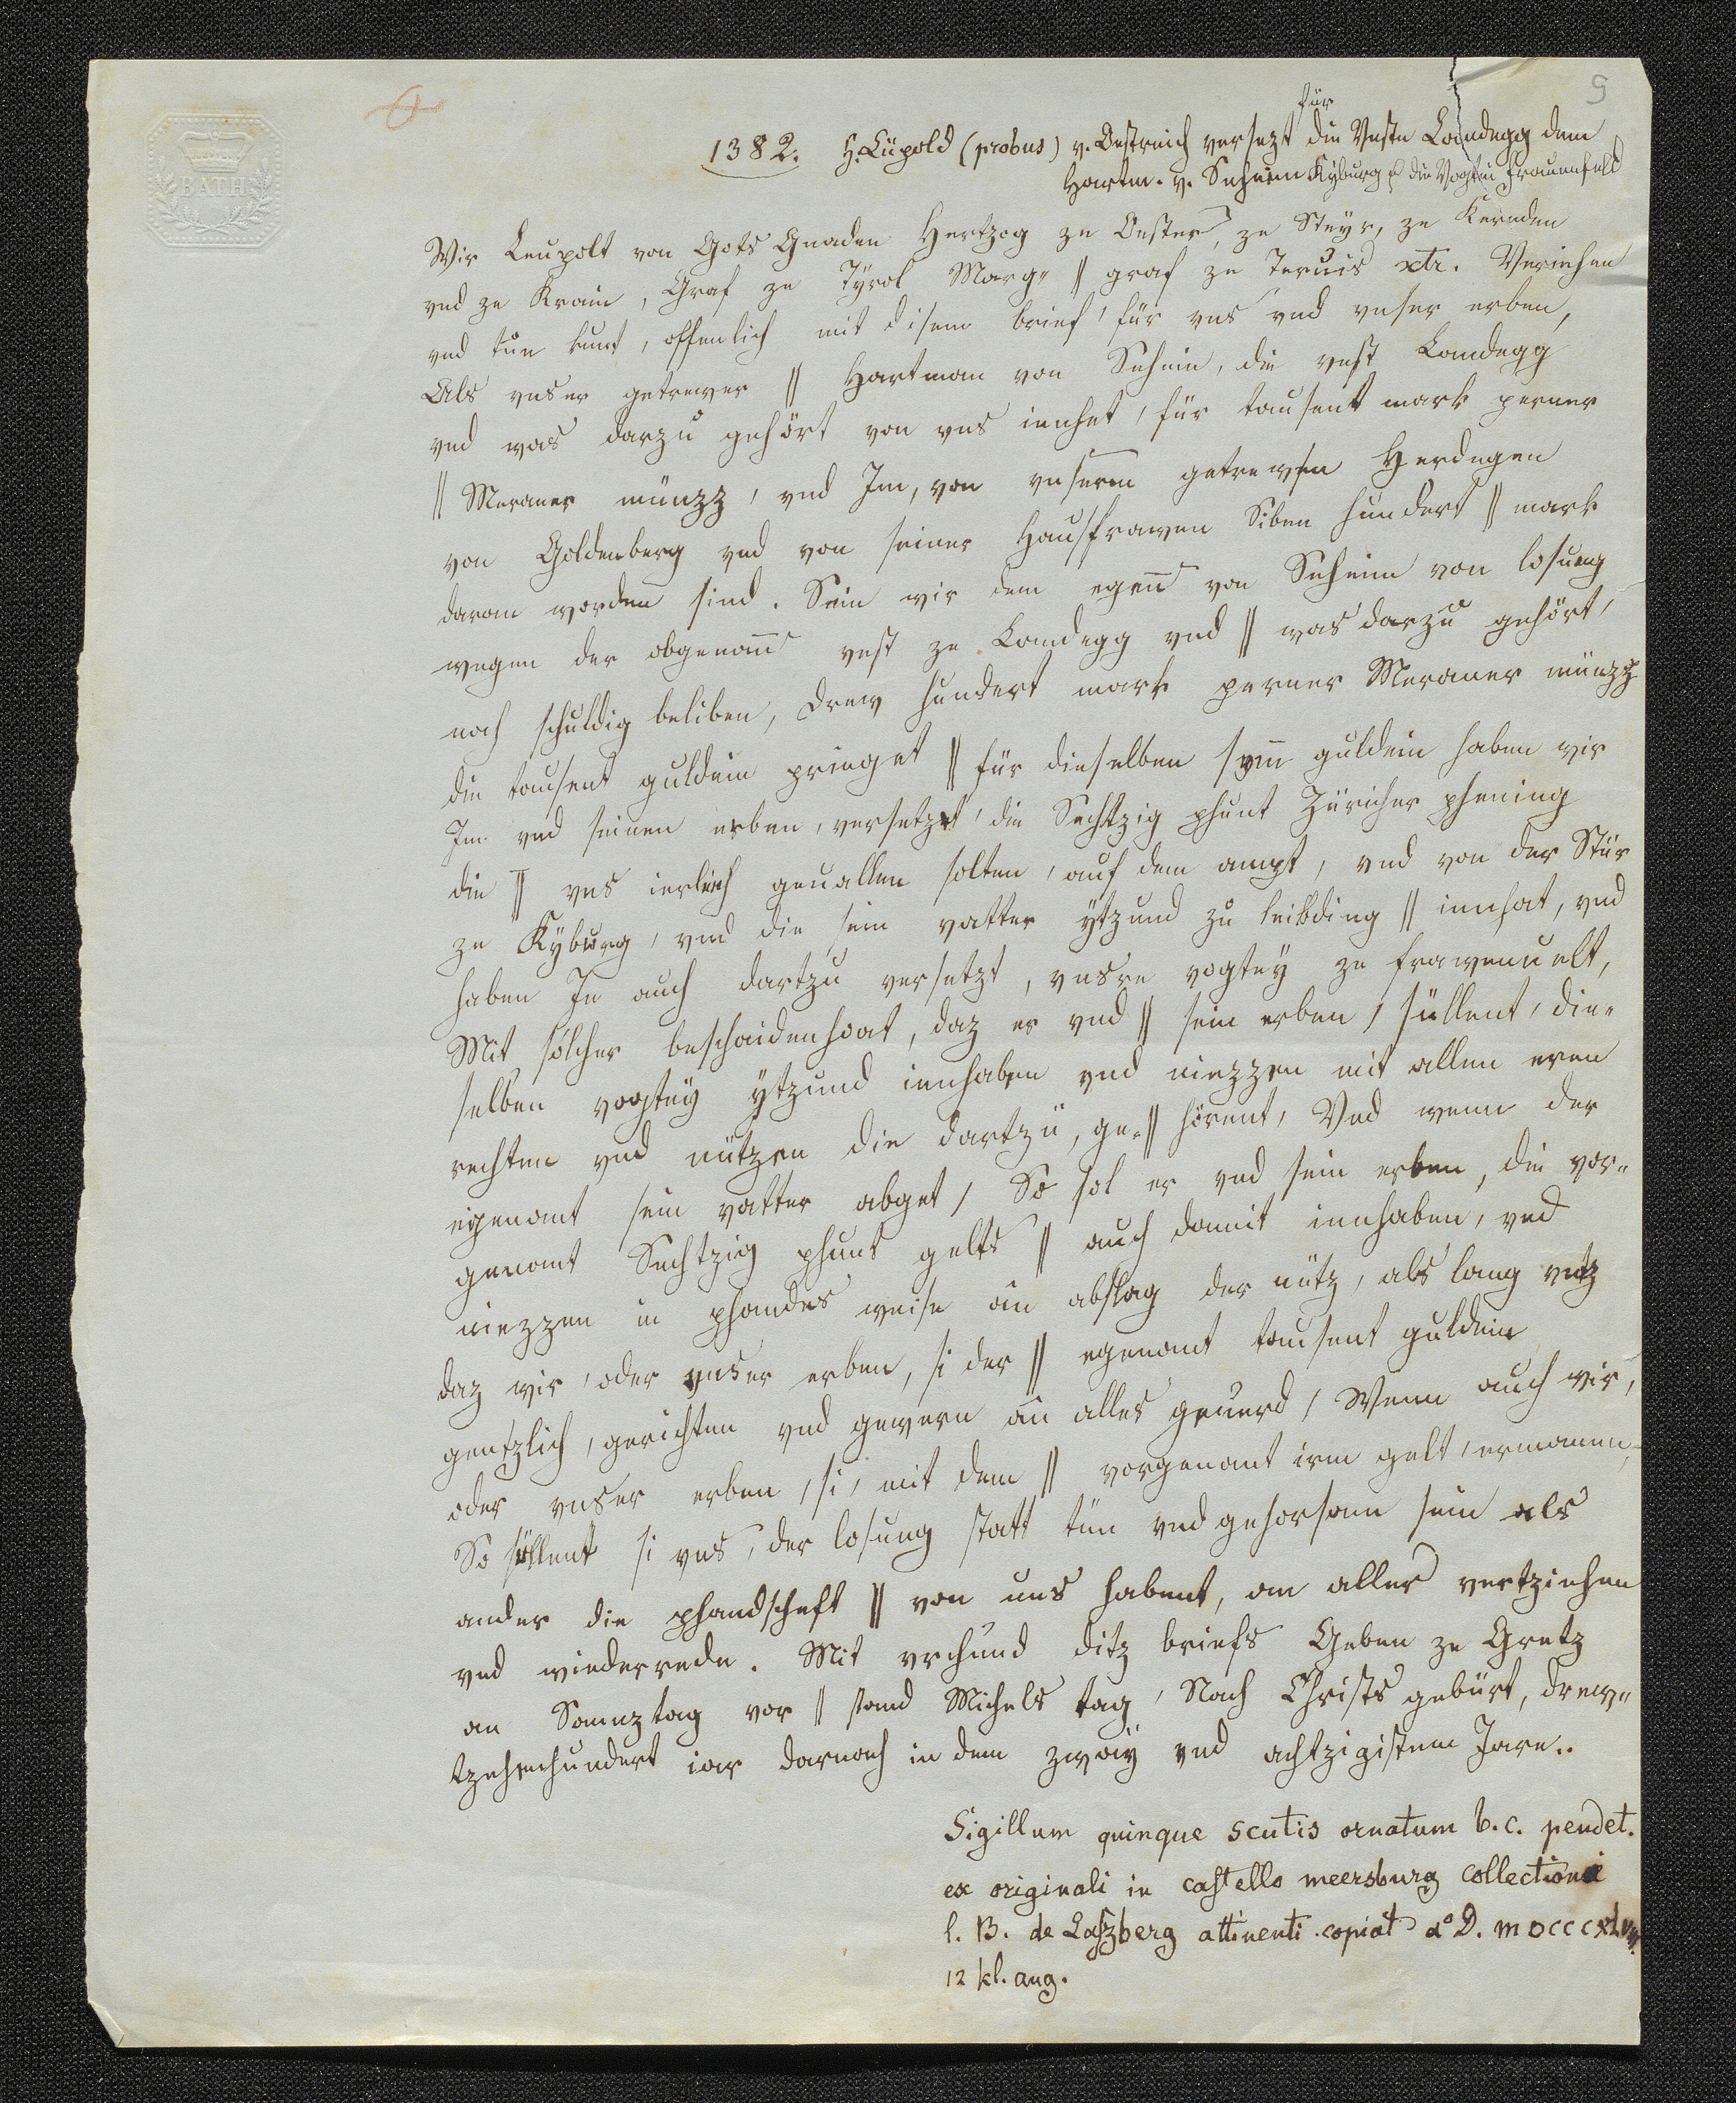 BATH
9
für
1382. H. Lüpold (probus) v. Oestreich versezt die Veste Landegg dem
Hartm. v. Seheim Kyburg u die Vogtei Frauenfeld
Wir Leupolt von Gots Gnaden Hertzog ze Oester, ze Steyr, ze Kernden
vnd ze Krain, Graf ze Tyrol Marg= || graf ze Teruis etc. Veriehen
vnd tun kunt, offenlich mit disem brief, für vns vnd vnser erben,
Als vnser getrewer || Hartman von Seheim, die vest Landegg
vnd was darzu gehört von vns innhet, für tausent mark perner
|| Meraner münzz, vnd Im, von vnserm getrewen Herdegen
von Goldenberg vnd von seiner Hausfrawen Siben hundert || mark
daran worden sind. Sein wir dem egen von Seheim von losung
wegen der obgenant vest ze Landegg vnd || was darzu gehört,
noch schuldig beliben, drew hundert mark perner Meraner münzz
die tausent guldein pringet || für dieselben sum guldein haben wir
Im vnd seinen erben, versetzet, die Sechtzig phunt Züricher phening
die || vns ierlich geuallen solten, auf dem ampt, vnd von der Stür
ze Kyburg, vnd die sein vatter ytzund zu leibding || innhat, vnd
haben In auch dartzu versetzt, vnsre vogtey ze frawenuelt,
Mit solcher beschaidenhait, daz er vnd || sein erben, süllent, die=
selben vogtey ytzund innhaben vnd niezzen mit allen eren
rechten vnd nützen die dartzu, ge= || hörent, Vnd wenn der
egenant sein vatter abget, So sol er vnd sein erben, die vor=
genant Sechtzig phunt gelts || auch damit innhaben, vnd
niezzen in phandes weise ân abslag der nütz, als lang vntz
daz wir, oder vnser erben, si der || egenant tausent guldein
gentzlich, gerichten vnd gewern ân alles geuerd, Wenn auch wir,
oder vnser erben, si, mit dem || vorgenant irm gelt, ermanen,
So süllent si vns, der losung statt tün vnd gehorsam sein als
ander die phandschaft || von uns habent, an alles vertziehen
vnd wiederrede. Mit vrchund ditz briefs Geben ze Gretz
an Sonnztag vor || sand Michels tag, Nach Christs gebürt, drew=
tzehenhundert iar darnach in dem zwaÿ vnd achtzigistem Jare..
Sigillum quinque scutis ornatum b.c. pendet.
ex originali in castello meersburg collectioni
l. B. de Laszberg attinenti copiat aº D. MDCCCXLVIII.
12 kl. aug.